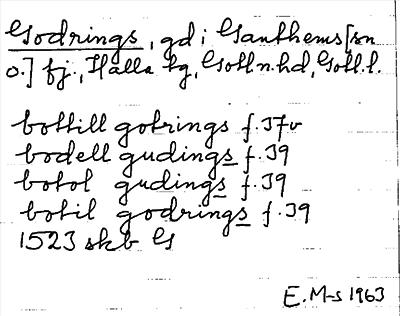 Godrings, gd i Ganthems [sn
o.] fj., Halla tg, Gotl.n.hd, Gotl.l.
bottill gotrings f.37v
bodell gudings f.39
botol gudings f.39
botil godrings f.39
1523 skb G
E.M-s 1963